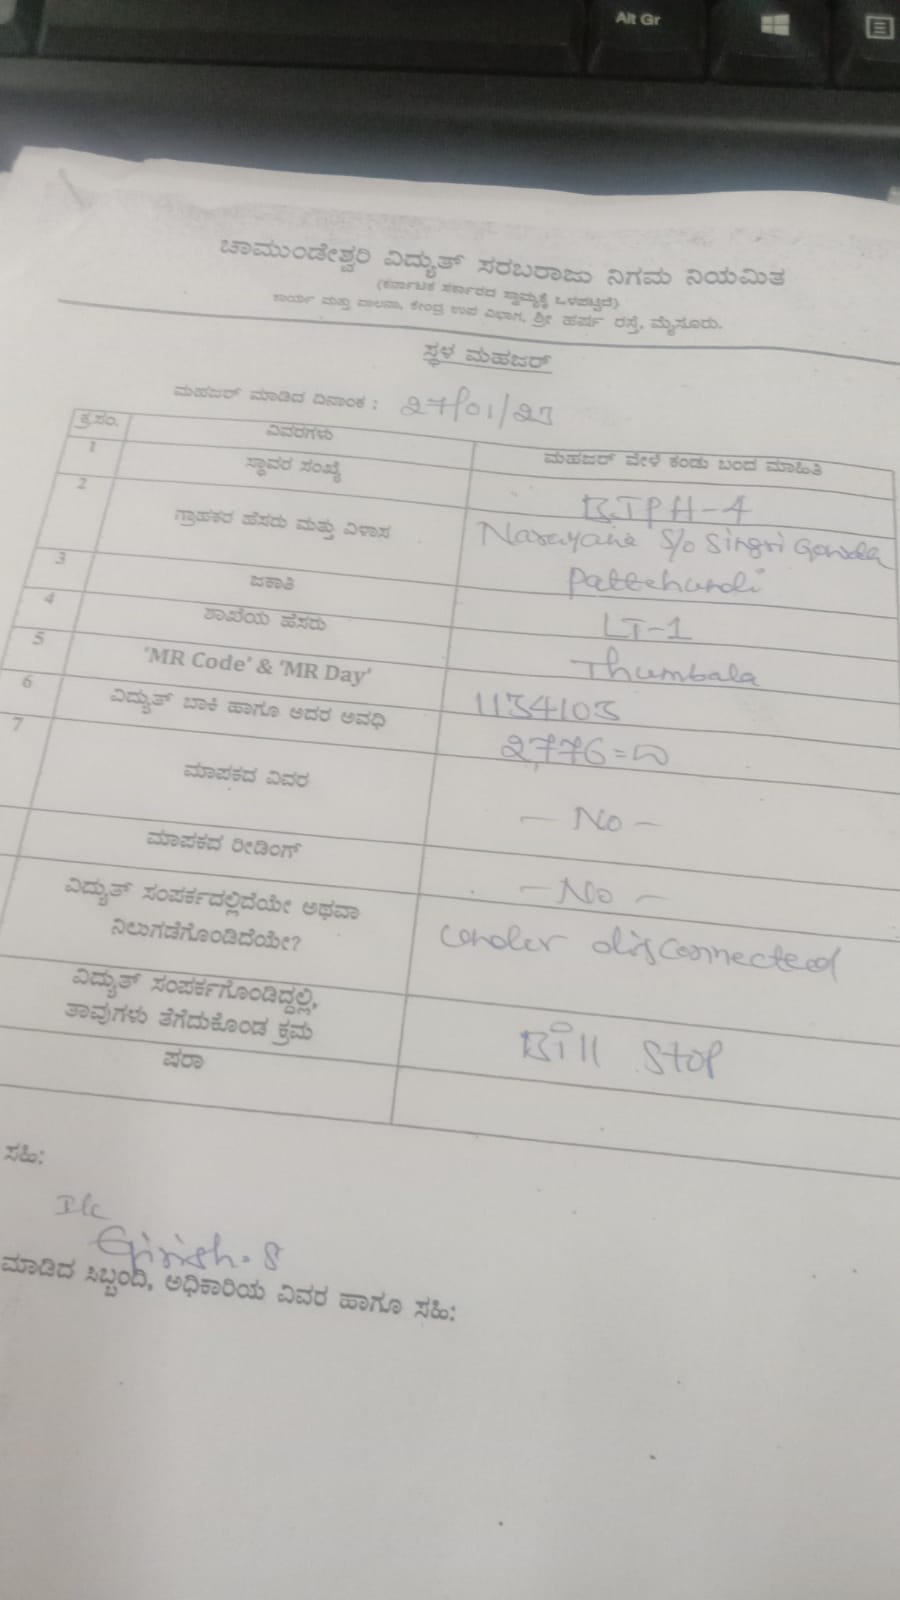 Alt Gr
ಚಾಮುಂಡೇಶ್ವರಿ ವಿದ್ಯುತ್ ಸರಬರಾಜು ನಿಗಮ ನಿಯಮಿತ
(ಕರ್ನಾಟಕ ಸರ್ಕಾರದ ಸ್ವಾಮ್ಯಕ್ಕೆ ಒಳಪಟ್ಟಿದೆ)
ಕಾರ್ಯ ಮತ್ತು ಪಾಲನಾ, ಕೇಂದ್ರ ಉಪ ವಿಭಾಗ, ಶ್ರೀ ಹರ್ಷ ರಸ್ತೆ, ಮೈಸೂರು.
ಸ್ಥಳ ಮಹಜರ್
ಮಹಜರ್ ಮಾಡಿದ ದಿನಾಂಕ : 27/01/23
ಕ್ರ.ಸಂ. ವಿವರಗಳು ಮಹಜರ್ ವೇಳೆ ಕಂಡು ಬಂದ ಮಾಹಿತಿ
1 ಸ್ಥಾವರ ಸಂಖ್ಯೆ BTPH-4
2 ಗ್ರಾಹಕರ ಹೆಸರು ಮತ್ತು ವಿಳಾಸ Narayana S/o Singri Gowda
Pattehundi
3 ಜಕಾತಿ LT-1
4 ಶಾಖೆಯ ಹೆಸರು Thumbala
5 'MR Code' & 'MR Day' 1134103
6 ವಿದ್ಯುತ್ ಬಾಕಿ ಹಾಗೂ ಅದರ ಅವಧಿ 2776=00
7 ಮಾಪಕದ ವಿವರ - No -
ಮಾಪಕದ ರೀಡಿಂಗ್ - No -
ವಿದ್ಯುತ್ ಸಂಪರ್ಕದಲ್ಲಿದೆಯೇ ಅಥವಾ
ನಿಲುಗಡೆಗೊಂಡಿದೆಯೇ? under disconnected
ವಿದ್ಯುತ್ ಸಂಪರ್ಕಗೊಂಡಿದ್ದಲ್ಲಿ,
ತಾವುಗಳು ತೆಗೆದುಕೊಂಡ ಕ್ರಮ Bill Stop
ಷರಾ
ಸಹಿ:
Girish. S
ಮಾಡಿದ ಸಿಬ್ಬಂದಿ, ಅಧಿಕಾರಿಯ ವಿವರ ಹಾಗೂ ಸಹಿ: